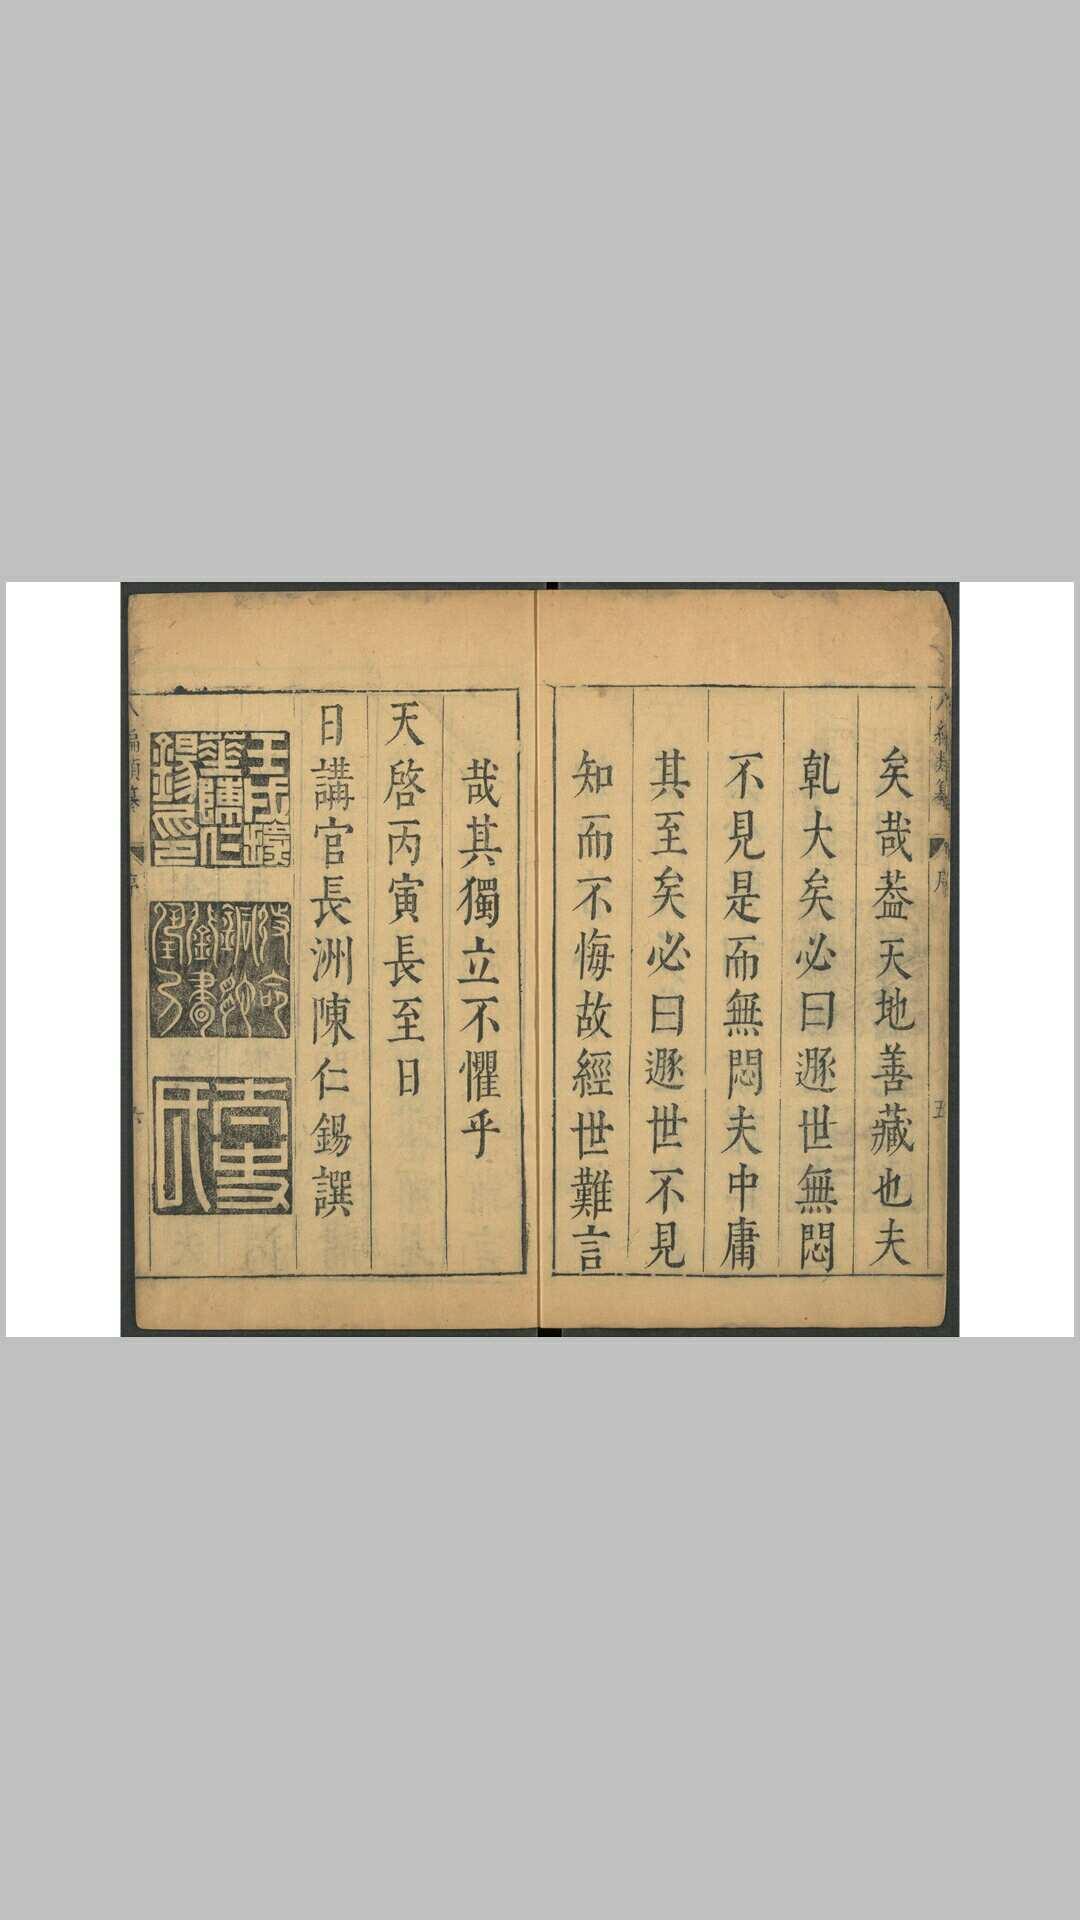 矣哉葢天地善藏也夫
乹大矣必曰遯世無悶
不見是而無悶夫中庸
其至矣必曰遯世不見
知而不悔故經世難言
哉其獨立不懼乎
天啓丙寅長至日
日講官長洲陳仁錫譔
八編類纂
序
五